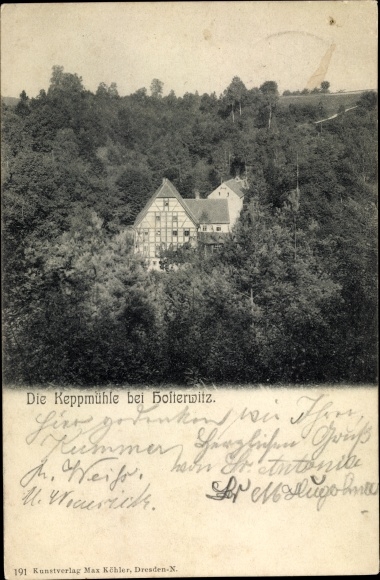 Die Keppmühle bei Hosterwitz.
Hier gedenken wir Ihrer
Kummer Herzlichen Gruß
A. Weiss. von Sr. Antonia
Sr M Hugolina
191 Kunstverlag Max Köhler, Dresden-N.